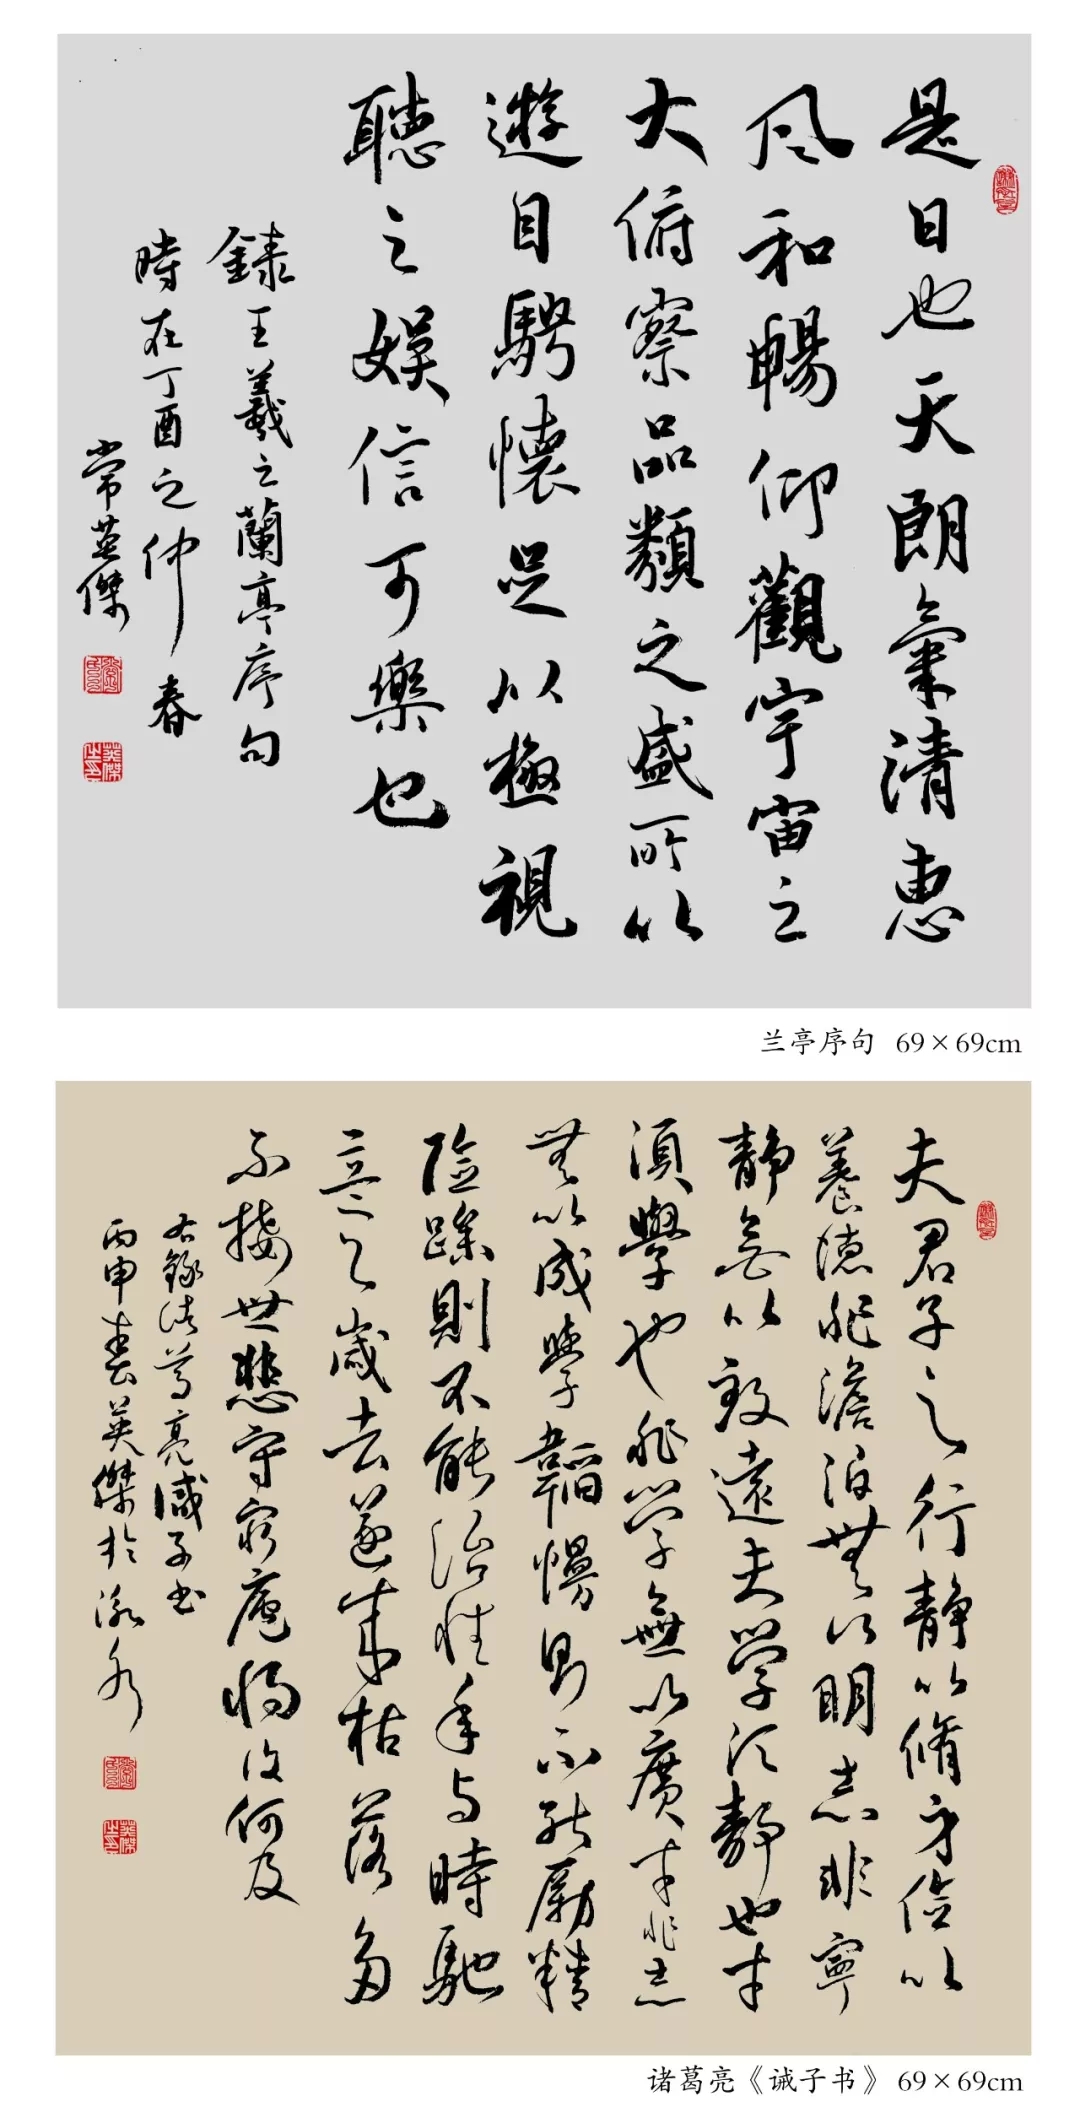 是日也天朗氣清惠
風和暢仰觀宇宙之
大俯察品類之盛所以
遊目騁懷足以極視
聽之娛信可樂也
錄王羲之蘭亭序句
時在丁酉之仲春
常英傑
兰亭序句 69×69cm
夫君子之行静以脩身儉以
養德非澹泊無以明志非寧
静無以致遠夫學須静也才
須學也非學無以廣才非志
無以成學韜慢則不能勵精
險躁則不能治性年与時馳
意与歲去遂成枯落多
不接世悲守窮廬將復何及
右錄诸葛亮誡子书
丙申春英傑於
诸葛亮《诫子书》 69×69cm